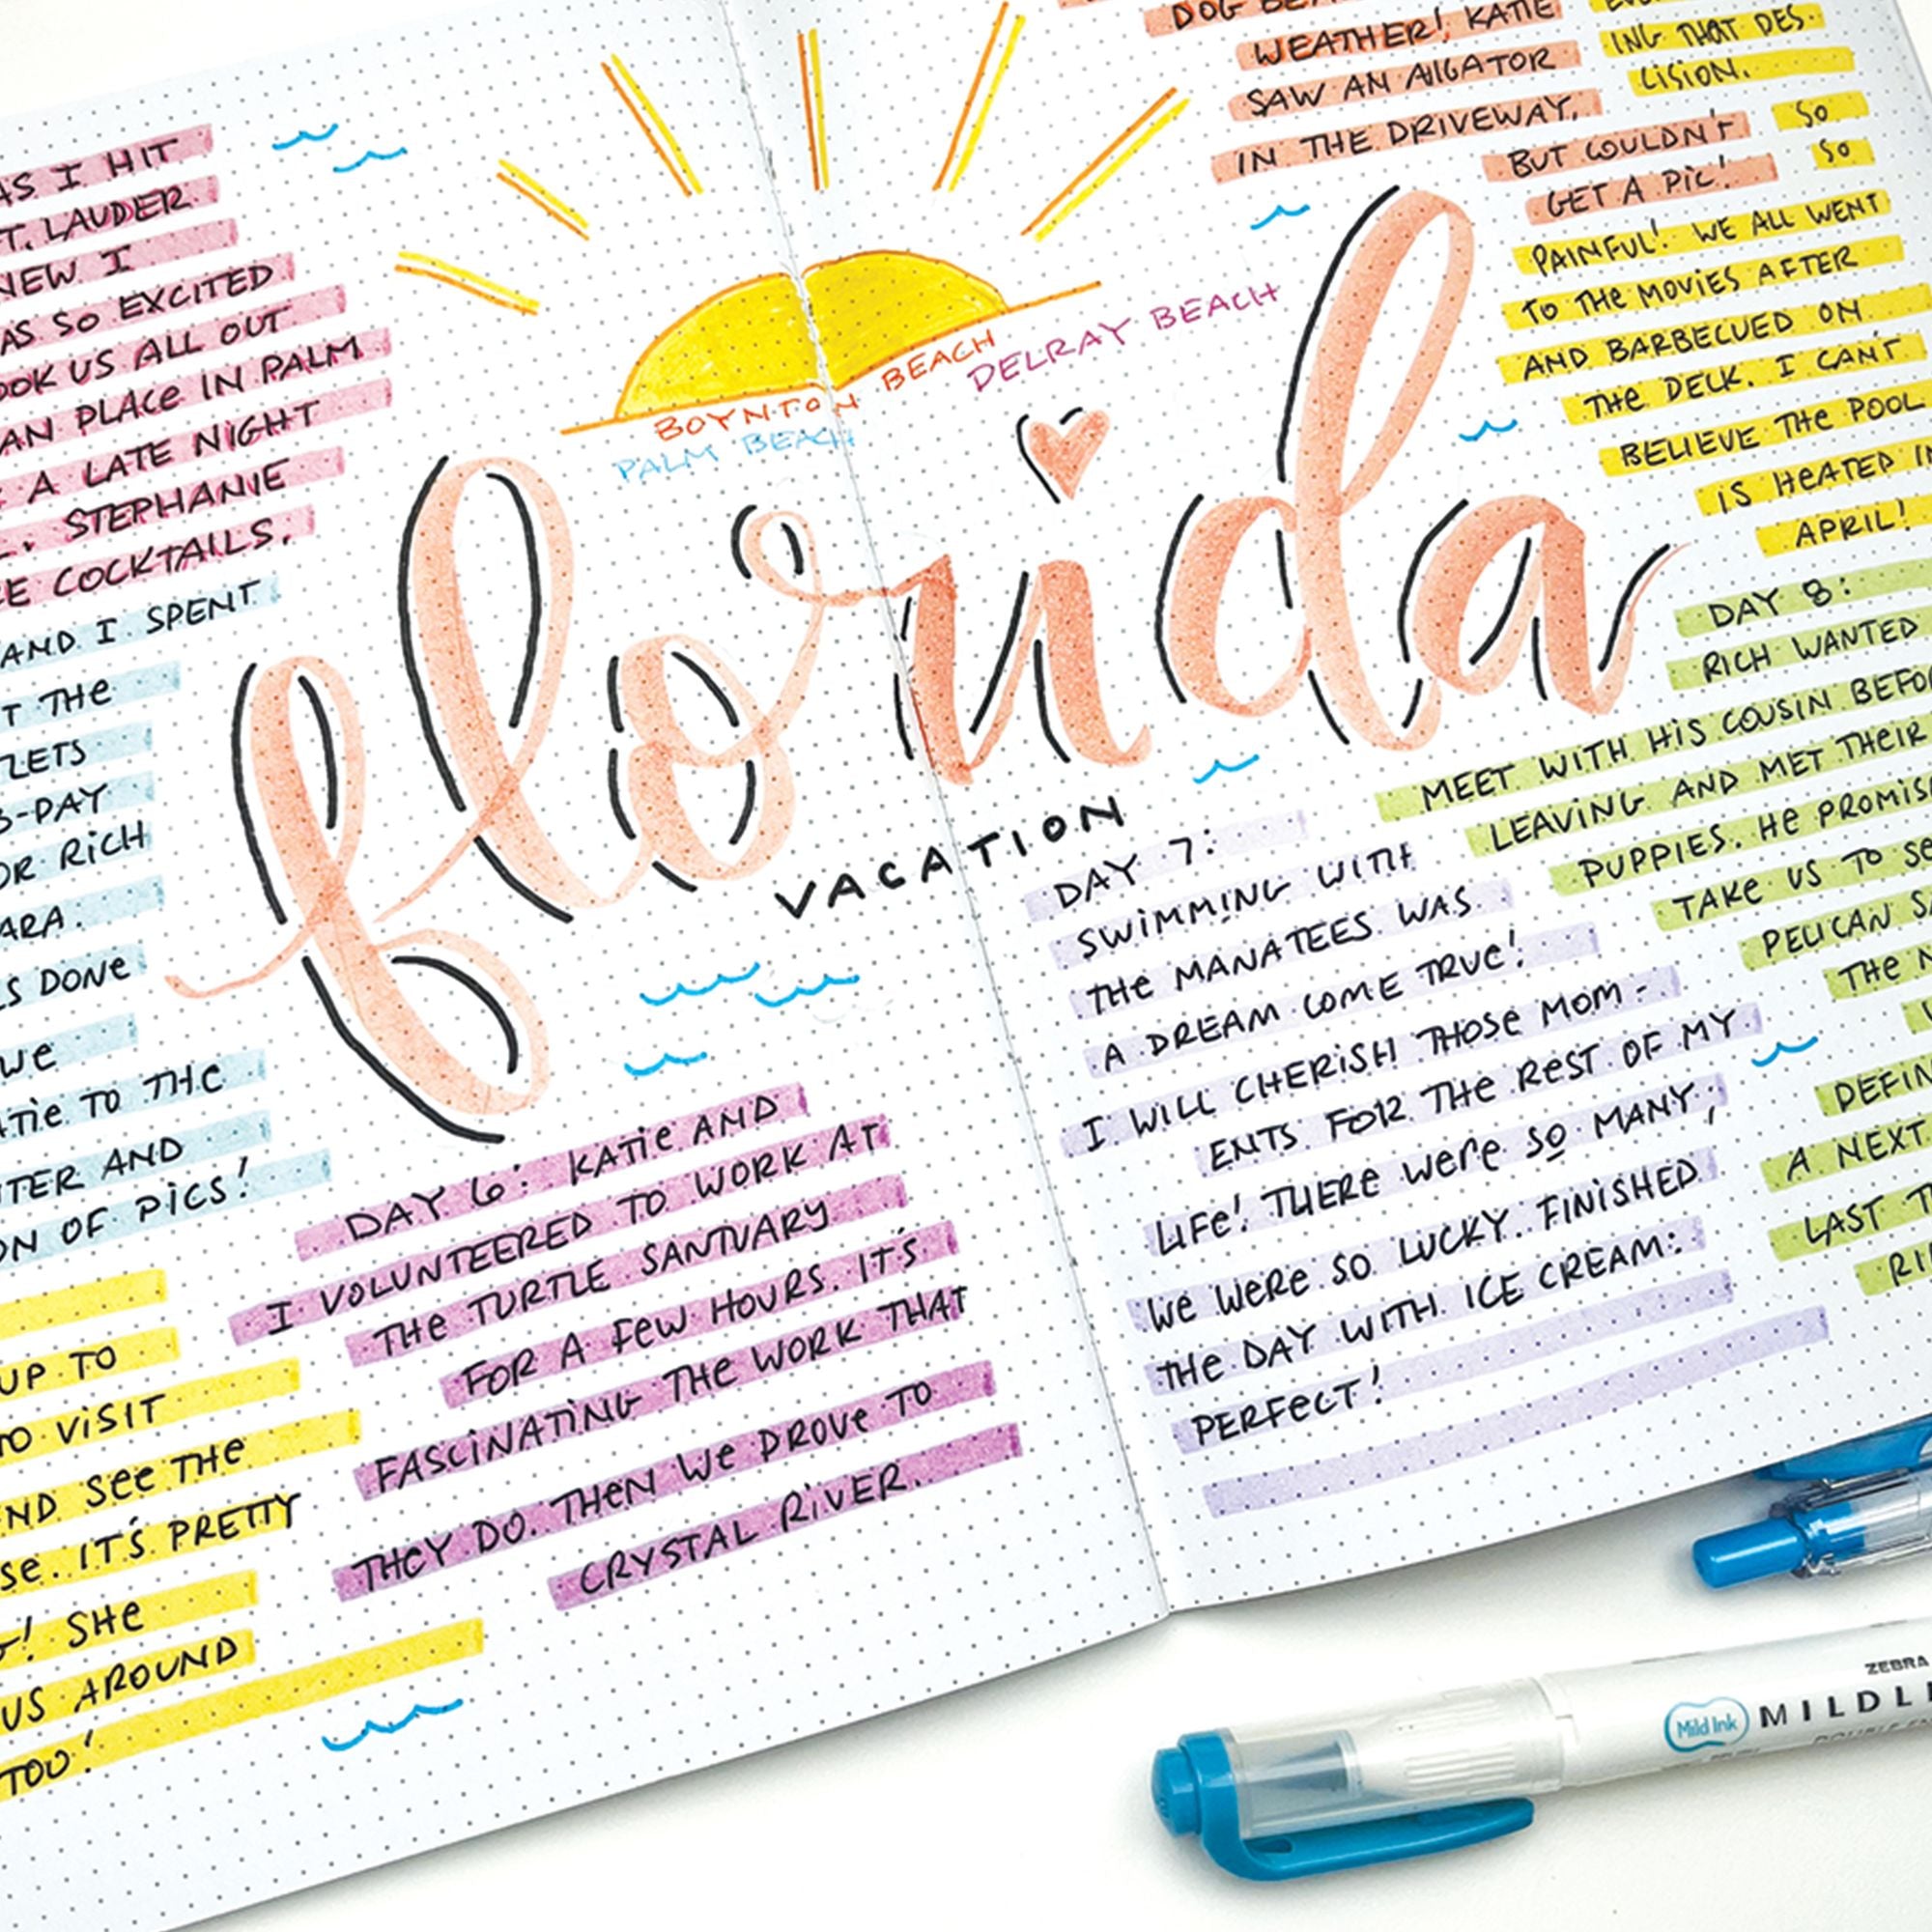 AS I HIT
T. LAUDER.
NEW I
AS SO EXCITED
OOK US ALL OUT
AN PLACE IN PALM
A LATE NIGHT
STEPHANIE
E COCKTAILS.
AND I SPENT
T THE
LETS
3-DAY
OR RICH
ARA.
LS DONE
WE
ATIE TO THE
TER AND
ON OF PICS!
UP TO
TO VISIT
ND SEE THE
SE. IT'S PRETTY
G! SHE
US AROUND
TOO!
BOYNTON BEACH
DELRAY BEACH
PALM BEACH
florida
VACATION
DAY 6: KATIE AND
I VOLUNTEERED TO WORK AT
THE TURTLE SANTUARY
FOR A FEW HOURS. IT'S
FASCINATING THE WORK THAT
THEY DO. THEN WE DROVE TO
CRYSTAL RIVER.
DOG
WEATHER! KATIE
SAW AN AlGATOR
IN THE DRIVEWAY,
BUT COULDN'T
GET A PIC!
ING THAT DES-
CISION.
SO
SO
PAINFUL! WE ALL WENT
TO THE MOVIES AFTER
AND BARBECUED ON
THE DECK. I CAN'T
BELIEVE THE POOL
IS HEATED IN
APRIL!
DAY 7:
SWIMMING WITH
THE MANATEES WAS
A DREAM COME TRUE!
I WILL CHERISH THOSE MOM-
ENTS FOR THE REST OF MY
LIFE! THERE WERE SO MANY;
WE WERE SO LUCKY. FINISHED
THE DAY WITH ICE CREAM:
PERFECT!
DAY 8:
RICH WANTED
MEET WITH HIS COUSIN BEFO
LEAVING AND MET THEIR
PUPPIES. HE PROMIS
TAKE US TO SE
PELICAN S
THE N
DEFIN
A NEXT
LAST T
RI
ZEBRA
Mild Ink MILDLI